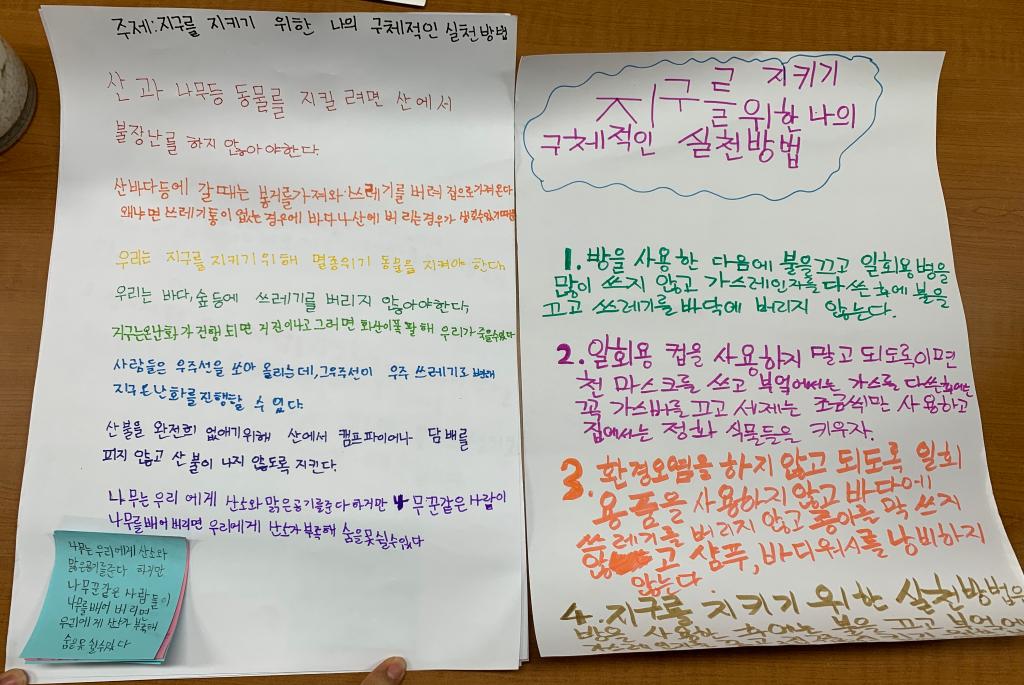 주제:지구를 지키기 위한 나의 구체적인 실천방법
산과 나무등 동물를 지킬 려면 산에서
불장난를 하지 않아야한다.
산바다등에 갈때는 봉거를가져와 쓰레기를 버려 집으로가져온다
왜냐면 쓰레기통이 없는 경우에 바다나 산에 버리는경우가 생길수있기때문
우리는 지구를 지키기위해 멸종위기 동물을 지켜야 한다.
우리는 바다,숲등에 쓰레기를 버리지 않아야한다,
지구는온난화가 진행 되면 지진이나고 그러면 화산이폭팔해 우리가죽을수있다
사람들은 우주선을 쏘아 올리는데,그우주선이 우주 쓰레기로 변해
지구온난화를진행될 수 있다.
산불을 완전희 없애기위해 산에서 캠프파이어나 담배를
피지 않고 산불이 나지 않도록 지킨다.
나무는우리에게 산소와 맑은공기를준다 하지만 나무꾼같은 사람이
나무를베어 버리면 우리에게 산소가 부족해 숨을못쉴수있다
나무는 우리에게 산소와
맑은공기를준다 하지만
나무꾼같은 사람들이
나무를베어 버리면
우리에게 산소가 부족해
숨을못쉴수있다
지구를 지키기
를 위한 나의
구체적인 실천방법
1. 방을 사용한 다음에 불을끄고 일회용병을
많이 쓰지 않고 가스레인지를다 쓴후에 불을
끄고 쓰레기를 바닥에 버리지 않는다.
2. 일회용 컵을 사용하지 말고 되도록이면
천 마스크를 쓰고 부엌에서는 가스를 다쓴후에는
꼭 가스바를 끄고 세제는 조금씩만 사용하고
집에서는 정화 식물들을 키우자.
3. 환경오염을 하지 않고 되도록 일회
용품을 사용하지않고 바다에
쓰레기를 버리지 않고 종이를 막 쓰지
않고 샴푸,바디워시를 낭비하지
않는다.
4. 지구를 지키기 위한 실천방법은
방을 사용한 후에는 불을 끄고 부엌에